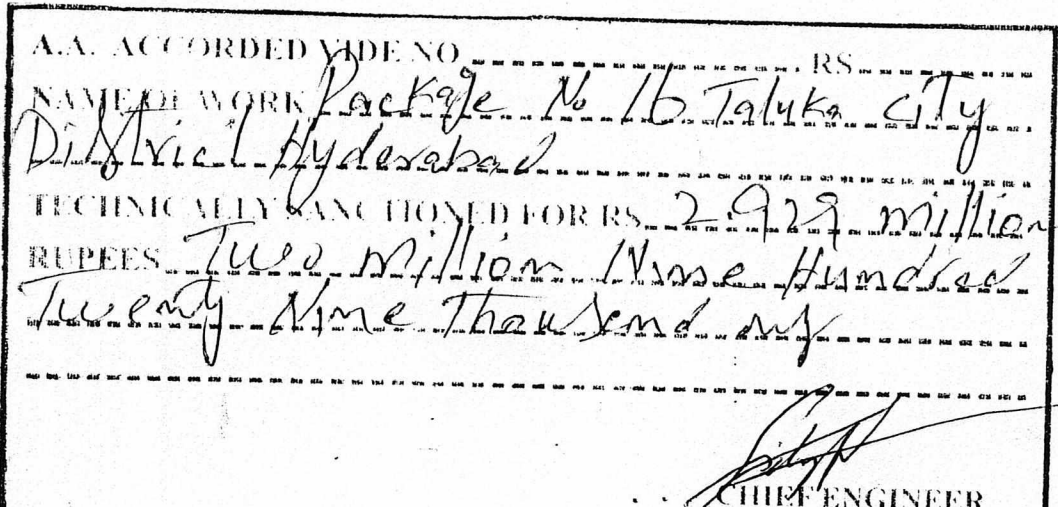 A.A. ACCORDED VIDE NO. ............ RS ............
NAME OF WORK Package No 16 Taluka City
District Hyderabad
TECHNICALLY SANCTIONED FOR RS. 2.929 million
RUPEES Two million Nine Hundred
Twenty Nine Thousend only
CHIEF ENGINEER